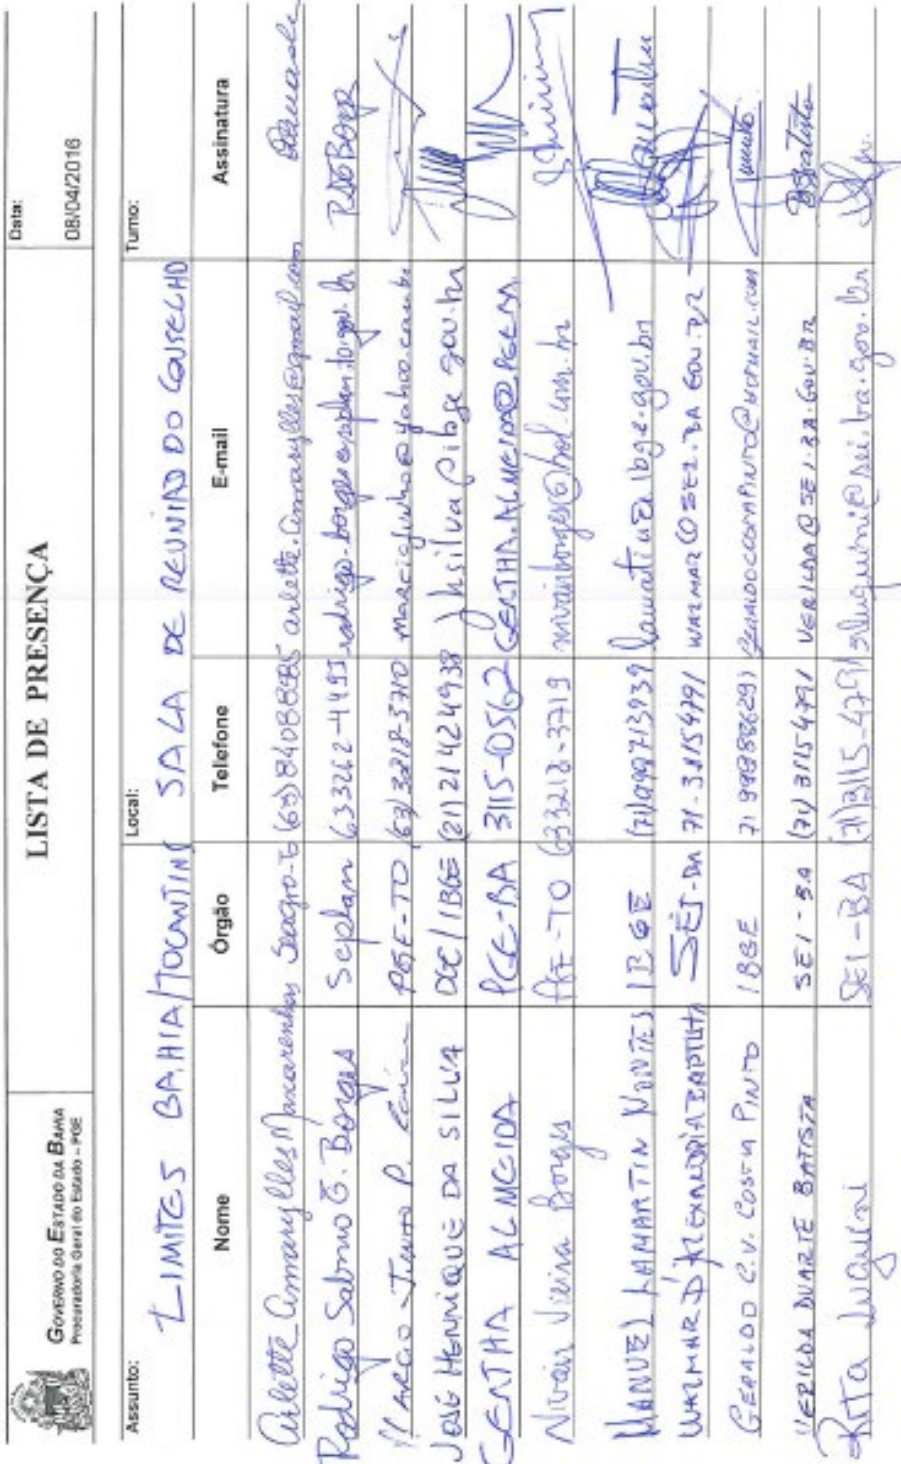 GOVERNO DO ESTADO DA BAHIA
Procuradoria Geral do Estado - PGE
LISTA DE PRESENÇA
Data:
08/04/2016
Assunto: LIMITES BAHIA/TOCANTINS
Local: SALA DE REUNIÃO DO CONSELHO
Turno:
Nome Órgão Telefone E-mail Assinatura
Arlette Amarylles Mascarenhas Seagro-To (63) 84088885 arlette.amarylles@gmail.com
Rodrigo Sabino G. Borges Seplan 63 3212-4493 rodrigo.borges@seplan.to.gov.br
Marcio Junho P. PGE-TO (63) 3218-3710 marciojunho@yahoo.com.br
JOSÉ HENRIQUE DA SILVA DGC/IBGE (21) 21424938 jhsilva@ibge.gov.br
GERTHA ALMEIDA PGE-BA 3115-0562 GERTHA.ALMEIDA@PGE.BA
Nivair Vieira Borges PGE-TO 63 3218-3719 nivairborges@bol.com.br
MANUEL LAMARTIN MONTES IBGE (71) 999713939 lamartin@ibge.gov.br
WALMAR D'ALEXANDRIA BAPTISTA SEI-BA 71-31154791 WALMAR@SEI.BA.GOV.BR
GERALDO C.V. COSTA PINTO IBGE 71 998886291 GERALDOCCOSTAPINTO@HOTMAIL.COM
VERILDA DUARTE BATISTA SEI-BA (71) 31154791 VERILDA@SEI.BA.GOV.BR Batista
Rita SEI-BA (71) 3115-4791